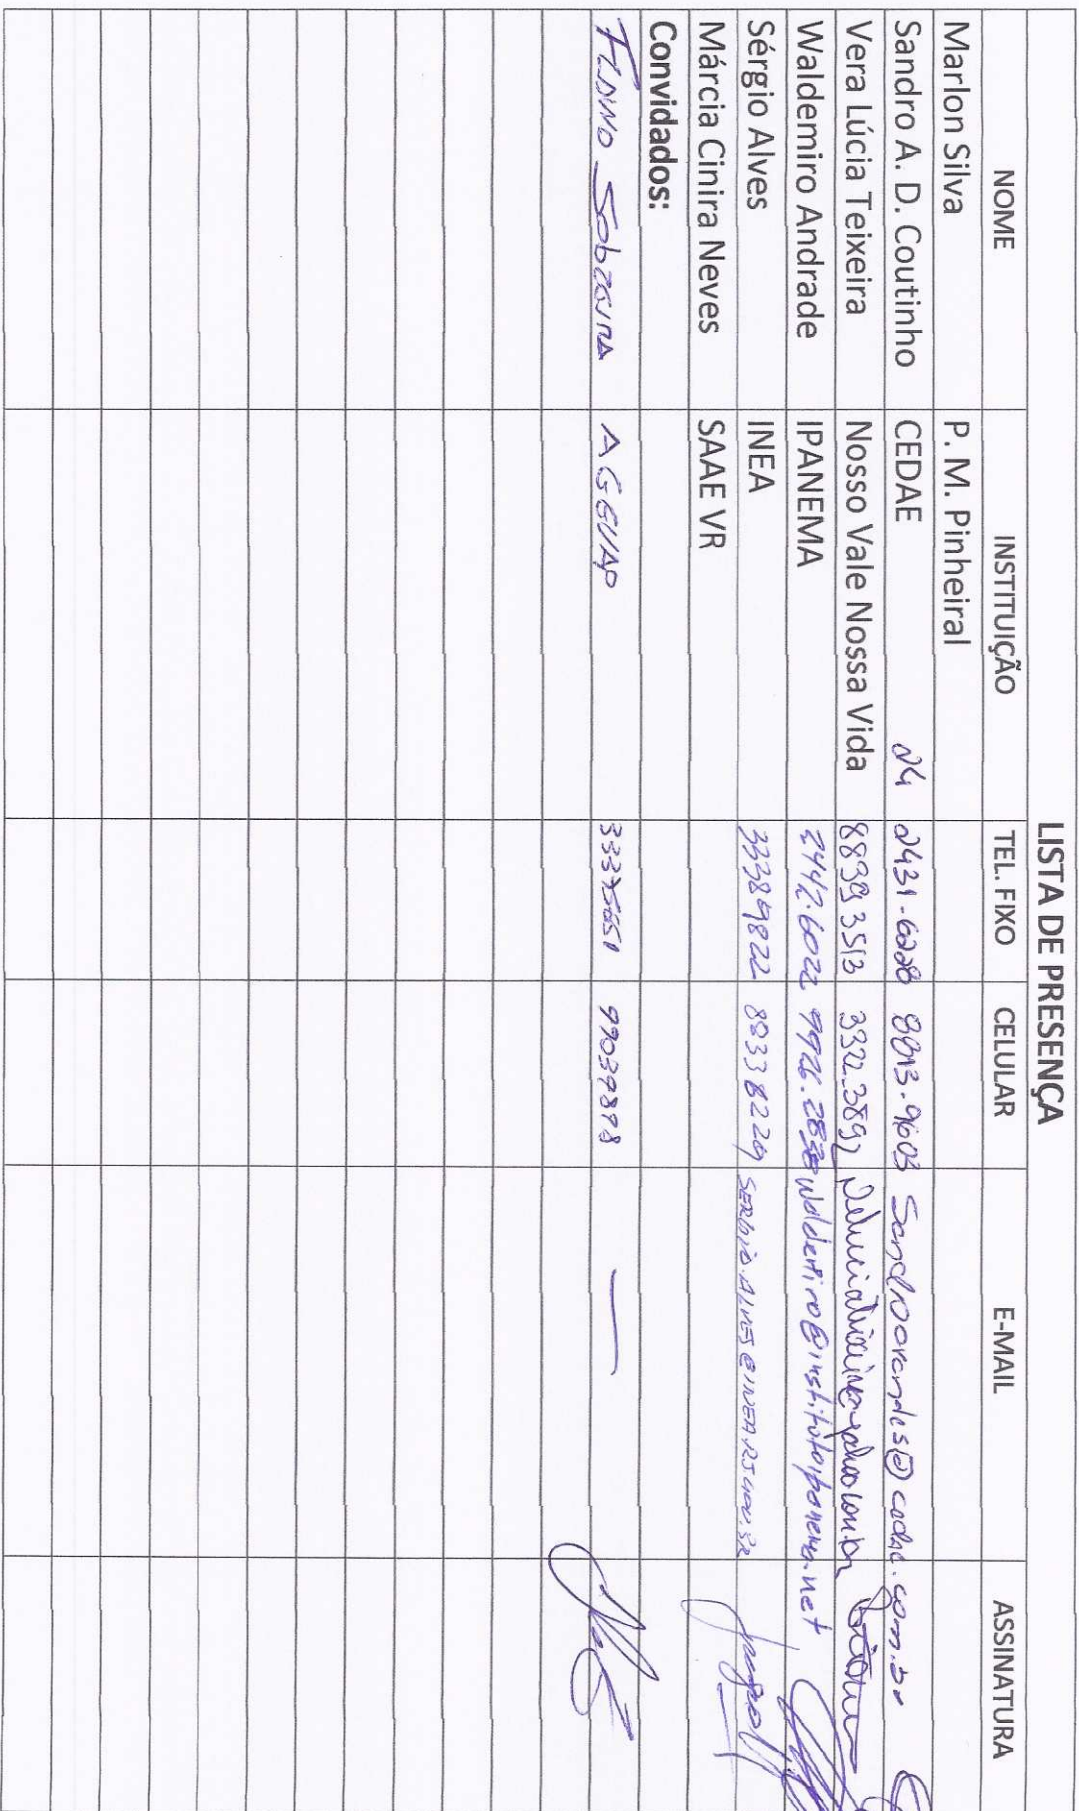 LISTA DE PRESENÇA
NOME INSTITUIÇÃO TEL. FIXO CELULAR E-MAIL ASSINATURA
Marlon Silva P. M. Pinheiral
Sandro A. D. Coutinho CEDAE 24 2431-6228 8813-9603
Vera Lúcia Teixeira Nosso Vale Nossa Vida 88393513 3322.3892
Waldemiro Andrade IPANEMA 2442.6022 waldemiro@institutoipanema.net
Sérgio Alves INEA 33389822 88338229 SERGIO.ALVES@INEA.RJ.GOV.BR
Márcia Cinira Neves SAAE VR
Convidados:
AGEVAP 99039898 —